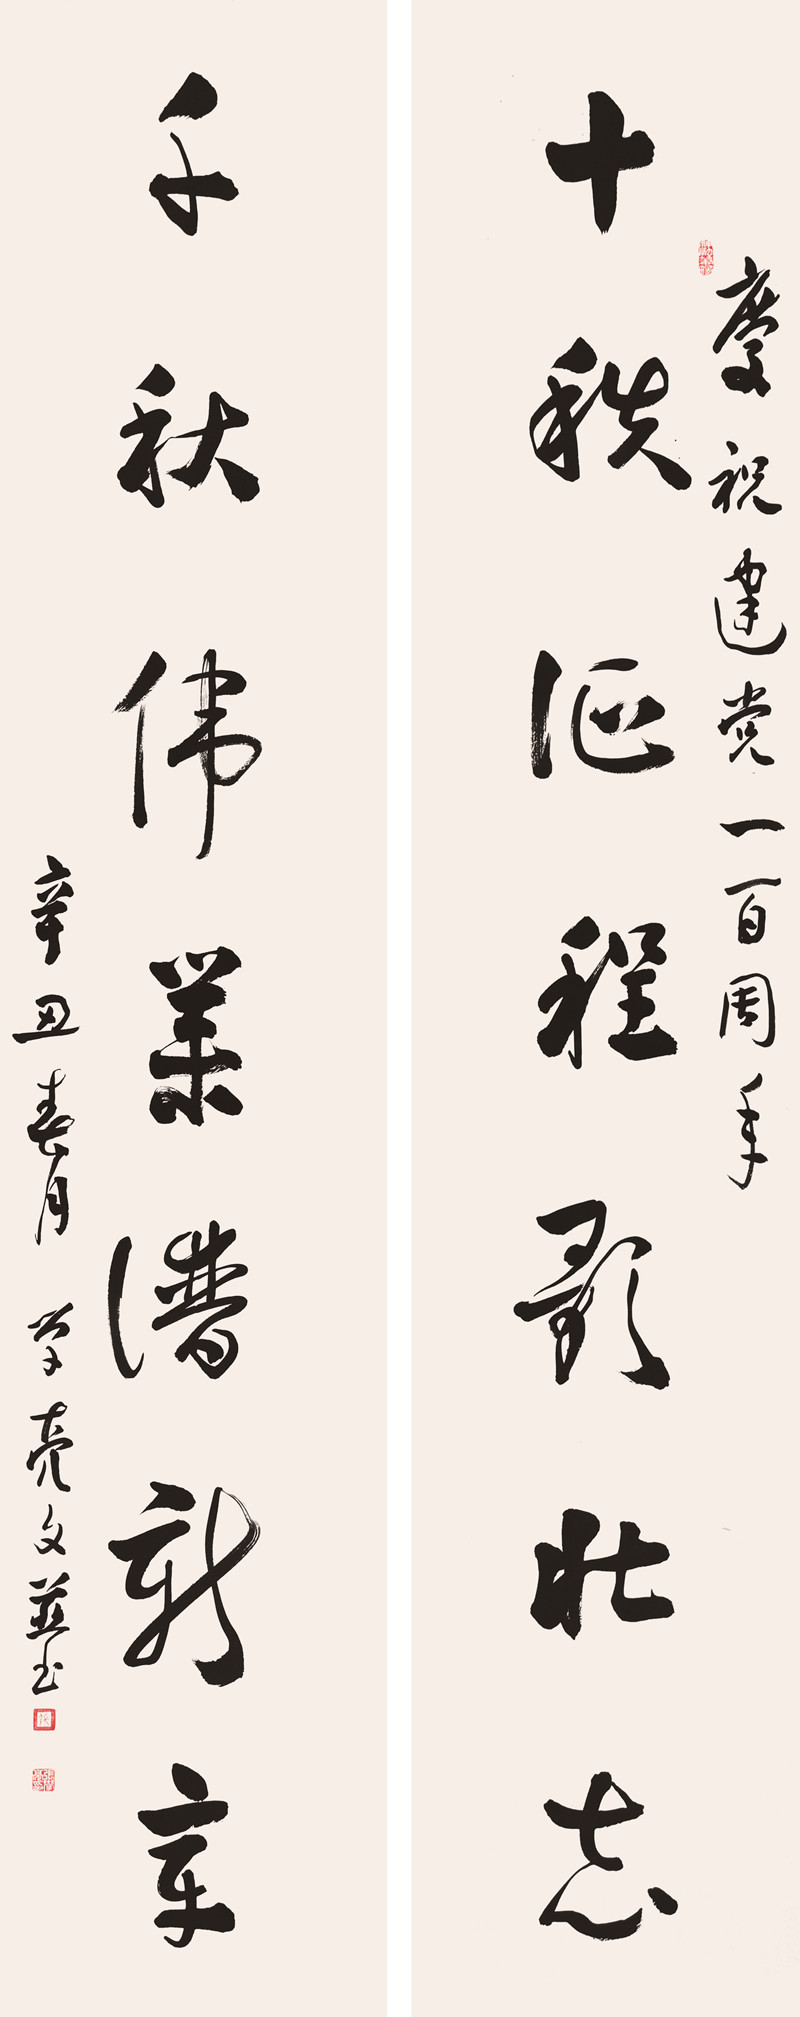 慶祝建党一百周年
十秩征程歌壮志
千秋伟業谱新章
辛丑春月 学亮文並书